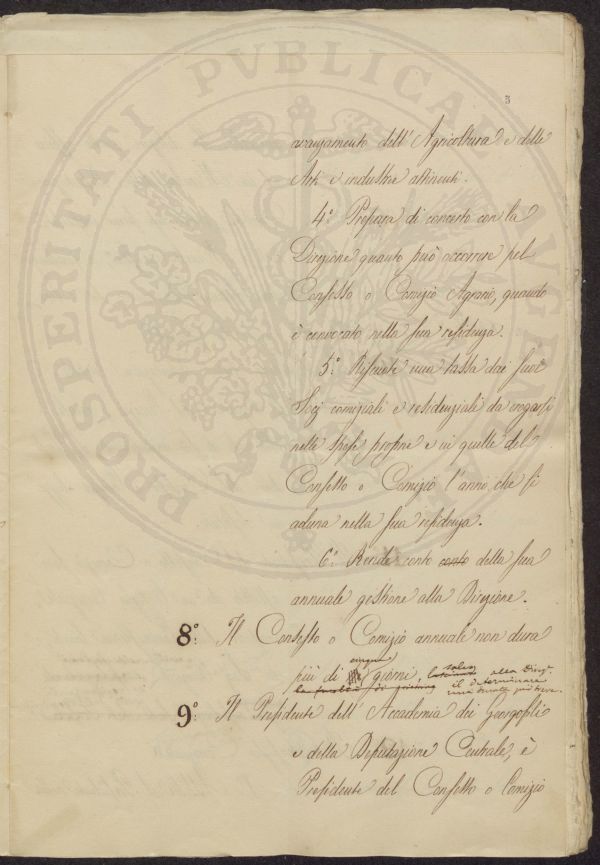 3
avanzamento dell' Agricoltura e delle
Arti e industrie attinenti.
4.° Prepara di concerto con la
Direzione quanto può occorrere pel
Consesso o Comizio Agrario, quando
è convocato nella sua residenza.
5.° Riscuote una tassa dai suoi
Socj comiziali e residenziali da erogarsi
nelle spese proprie e in quelle del
Consesso o Comizio l'anno che si
aduna nella sua residenza.
6.° Rende conto conto della sua
annuale gestione alla Direzione.
8.° Il Consesso o Comizio annuale non dura
cinque
più di giorni, salvo alla Direz.
il determinare
una durata più breve.
9.° Il Presidente dell' Accademia dei Georgofili
e della Deputazione Centrale, è
Presidente del Consesso o Comizio
PROSPERITATI PVBLICAE AVGENDAE